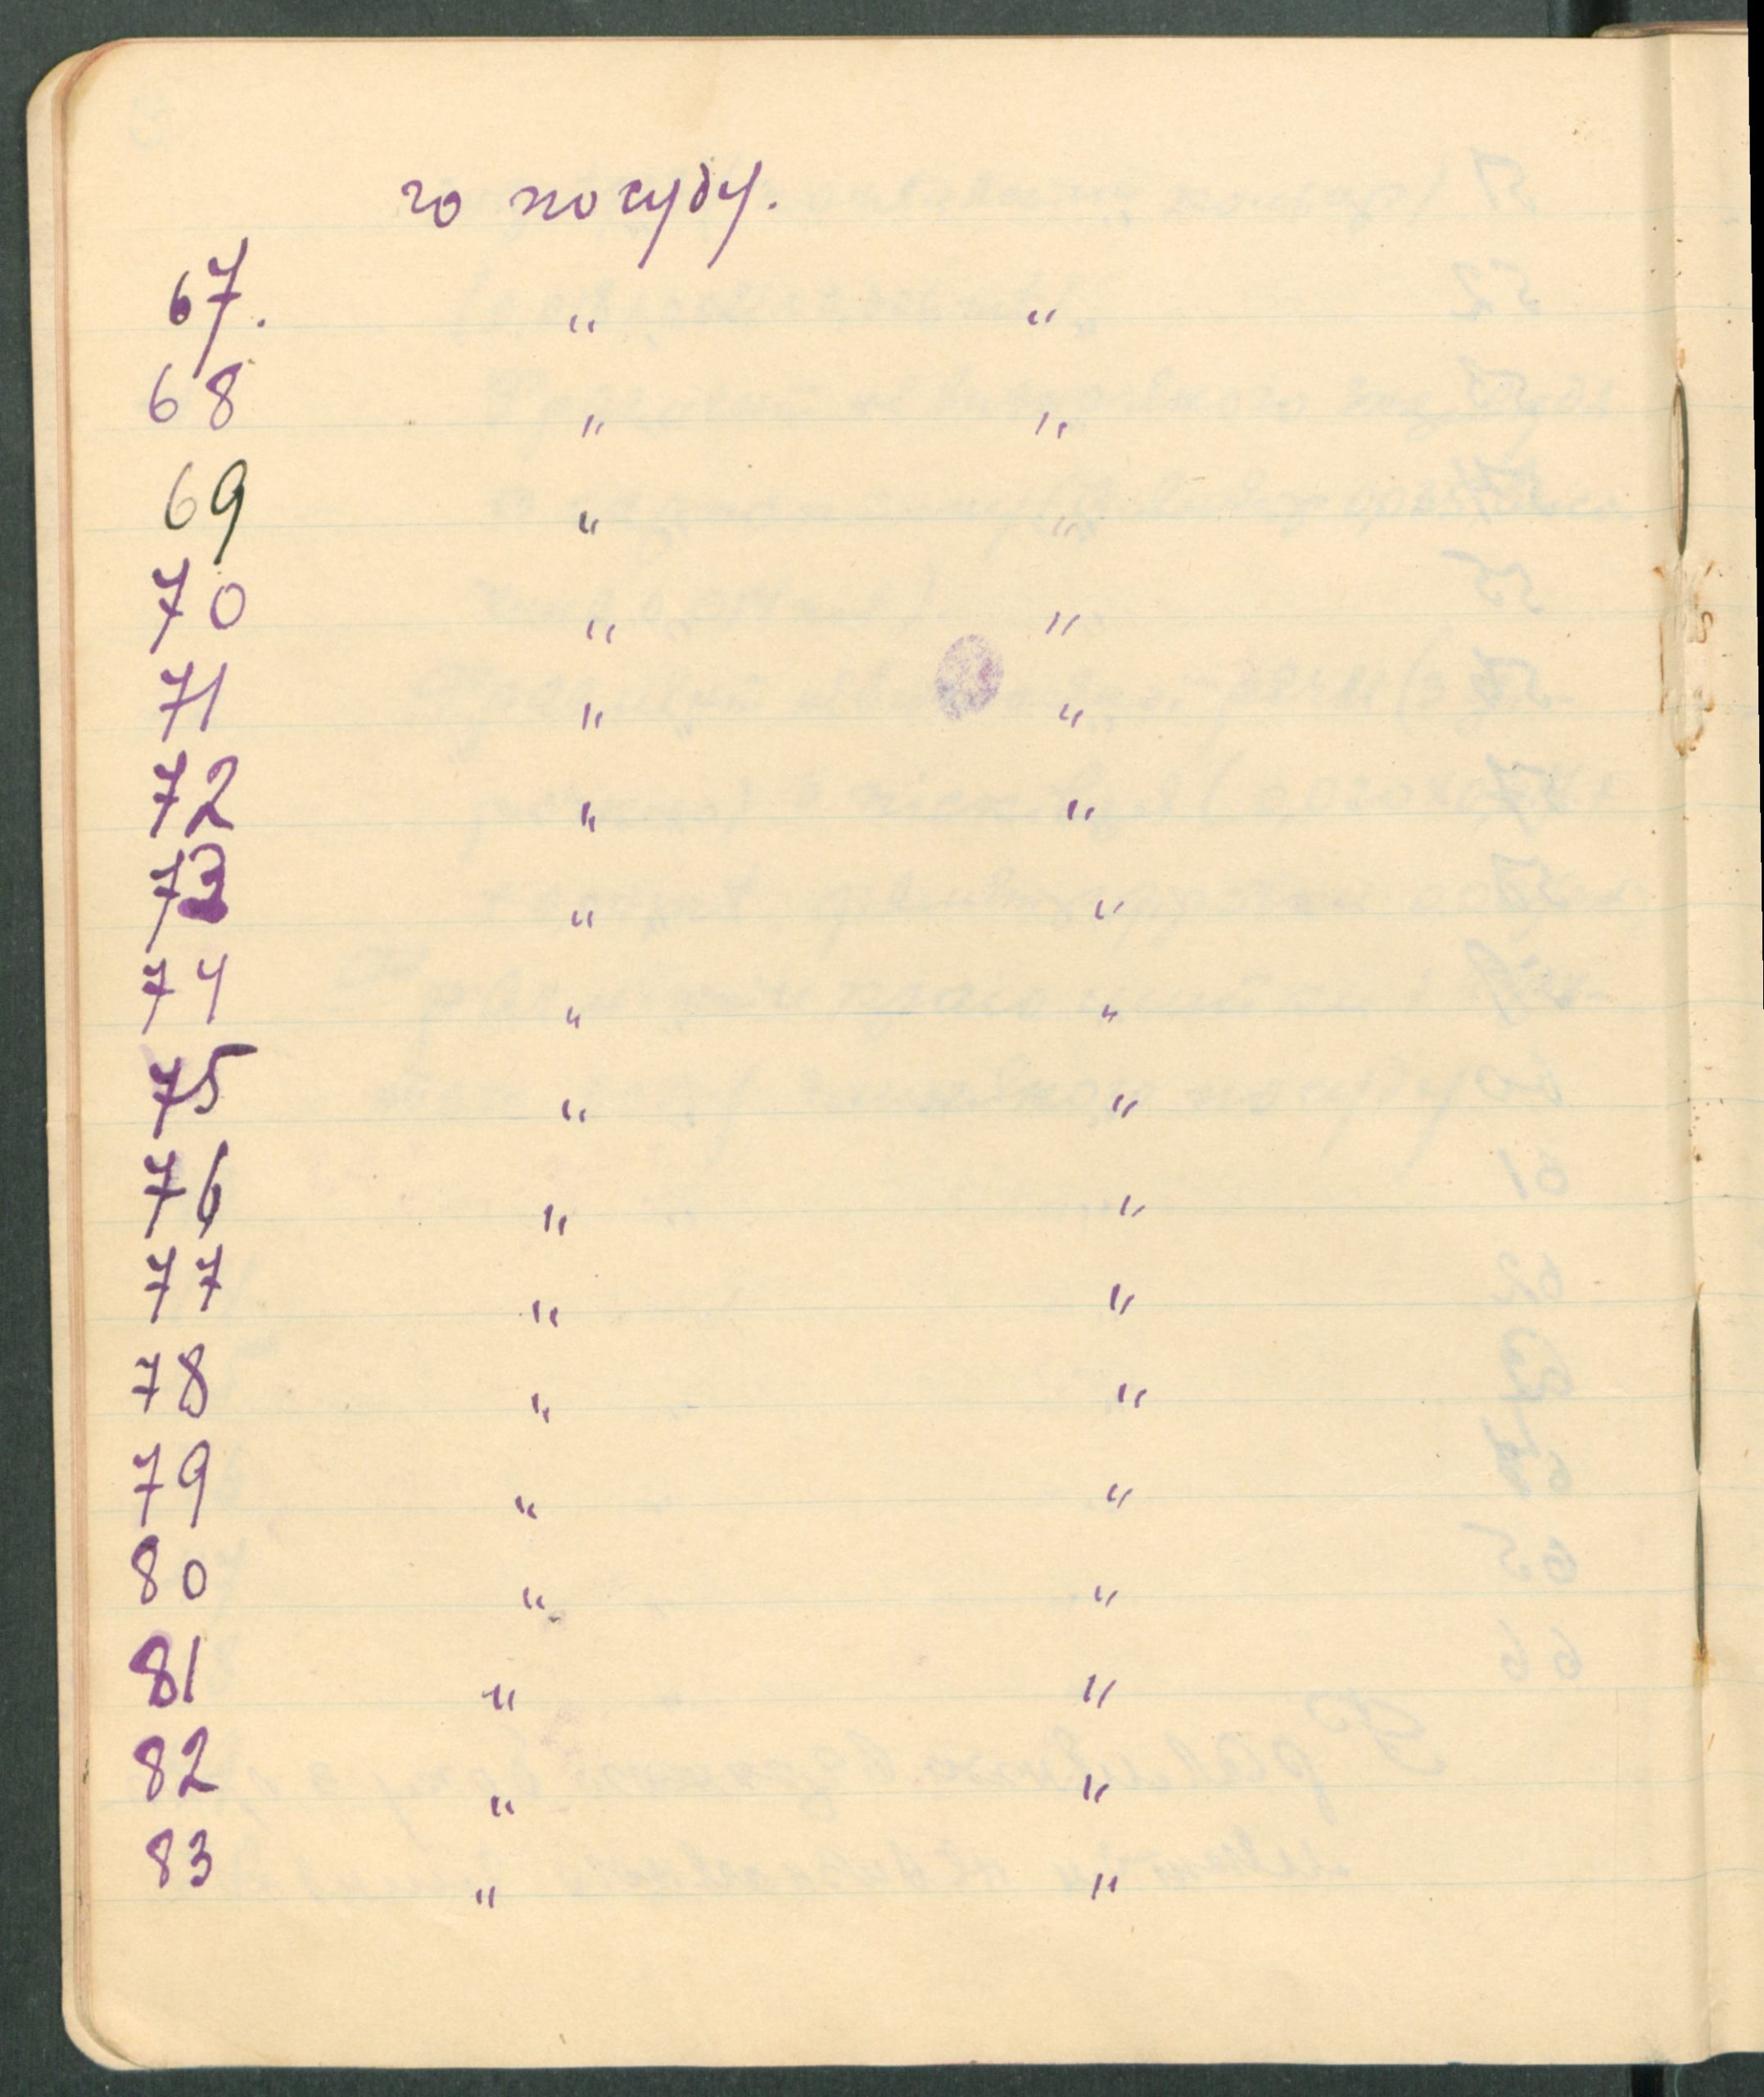 го посуду.
67. " "
68 " "
69 " "
70 " "
71 " "
72 " "
73 " "
74 " "
75 " "
76 " "
77 " "
78 " "
79 " "
80 " "
81 " "
82 " "
83 " "